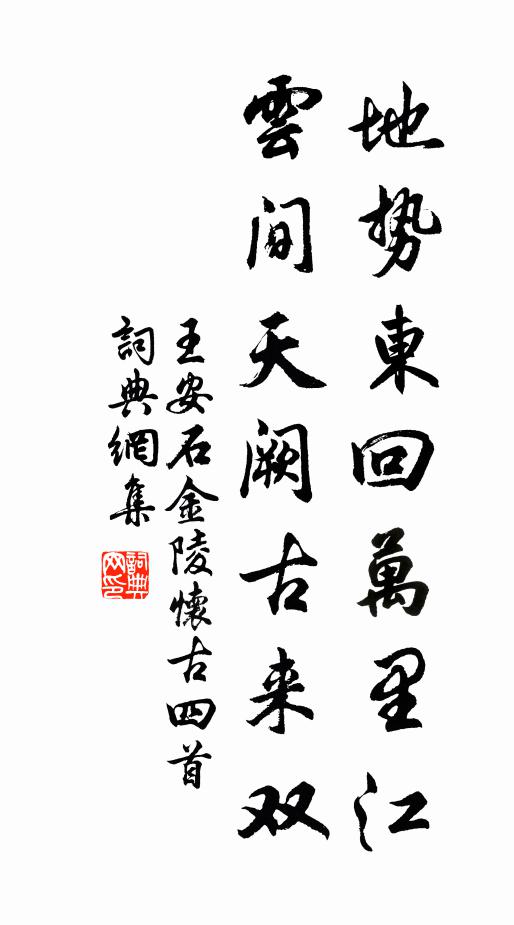 地势東回萬里江
雲间天阙古来双
王安石金陵懷古四首
詞典網集
詞典網印